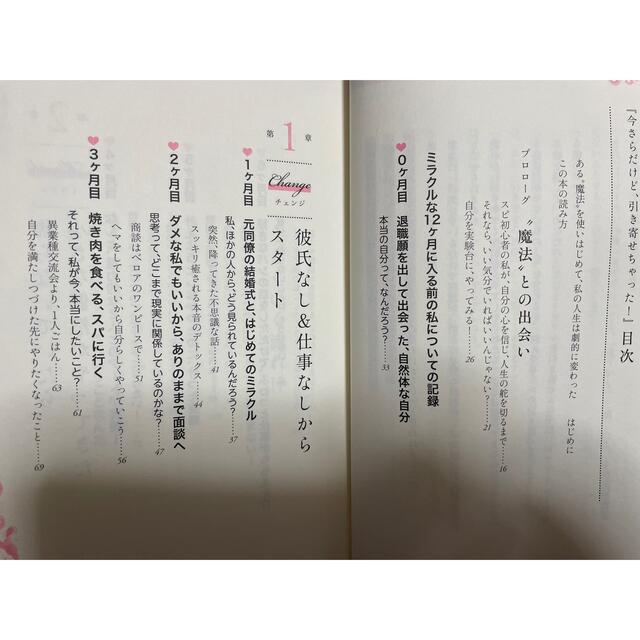 『今さらだけど、引き寄せちゃった！』目次
はじめに
ある“魔法”を使いはじめて、私の人生は劇的に変わった
この本の読み方
プロローグ “魔法”との出会い
スピ初心者の私が、自分の心を信じ、人生の舵を切るまで……16
それなら、いい気分でいればいいんじゃない？……21
自分を実験台に、やってみる！……26
ミラクルな12ヶ月に入る前の私についての記録
♥0ヶ月目 退職願を出して出会った、自然体な自分
本当の自分って、なんだろう？……33
第1章 Change チェンジ
彼氏なし＆仕事なしから
スタート
♥1ヶ月目 元同僚の結婚式と、はじめてのミラクル
私、ほかの人から、どう見られているんだろう？……37
突然、降ってきた不思議な話……41
スッキリ癒される本音のデトックス……44
♥2ヶ月目 ダメな私でもいいから、ありのままで面談へ
思考って、どこまで現実に関係しているのかな？……47
商談はベロアのワンピースで……51
ヘマをしてもいいから自分らしくやっていこう……56
♥3ヶ月目 焼き肉を食べる、スパに行く
それって、私が今、本当にしたいこと？……61
異業種交流会より、1人ごはん……63
自分を満たしつづけた先にやりたくなったこと……69